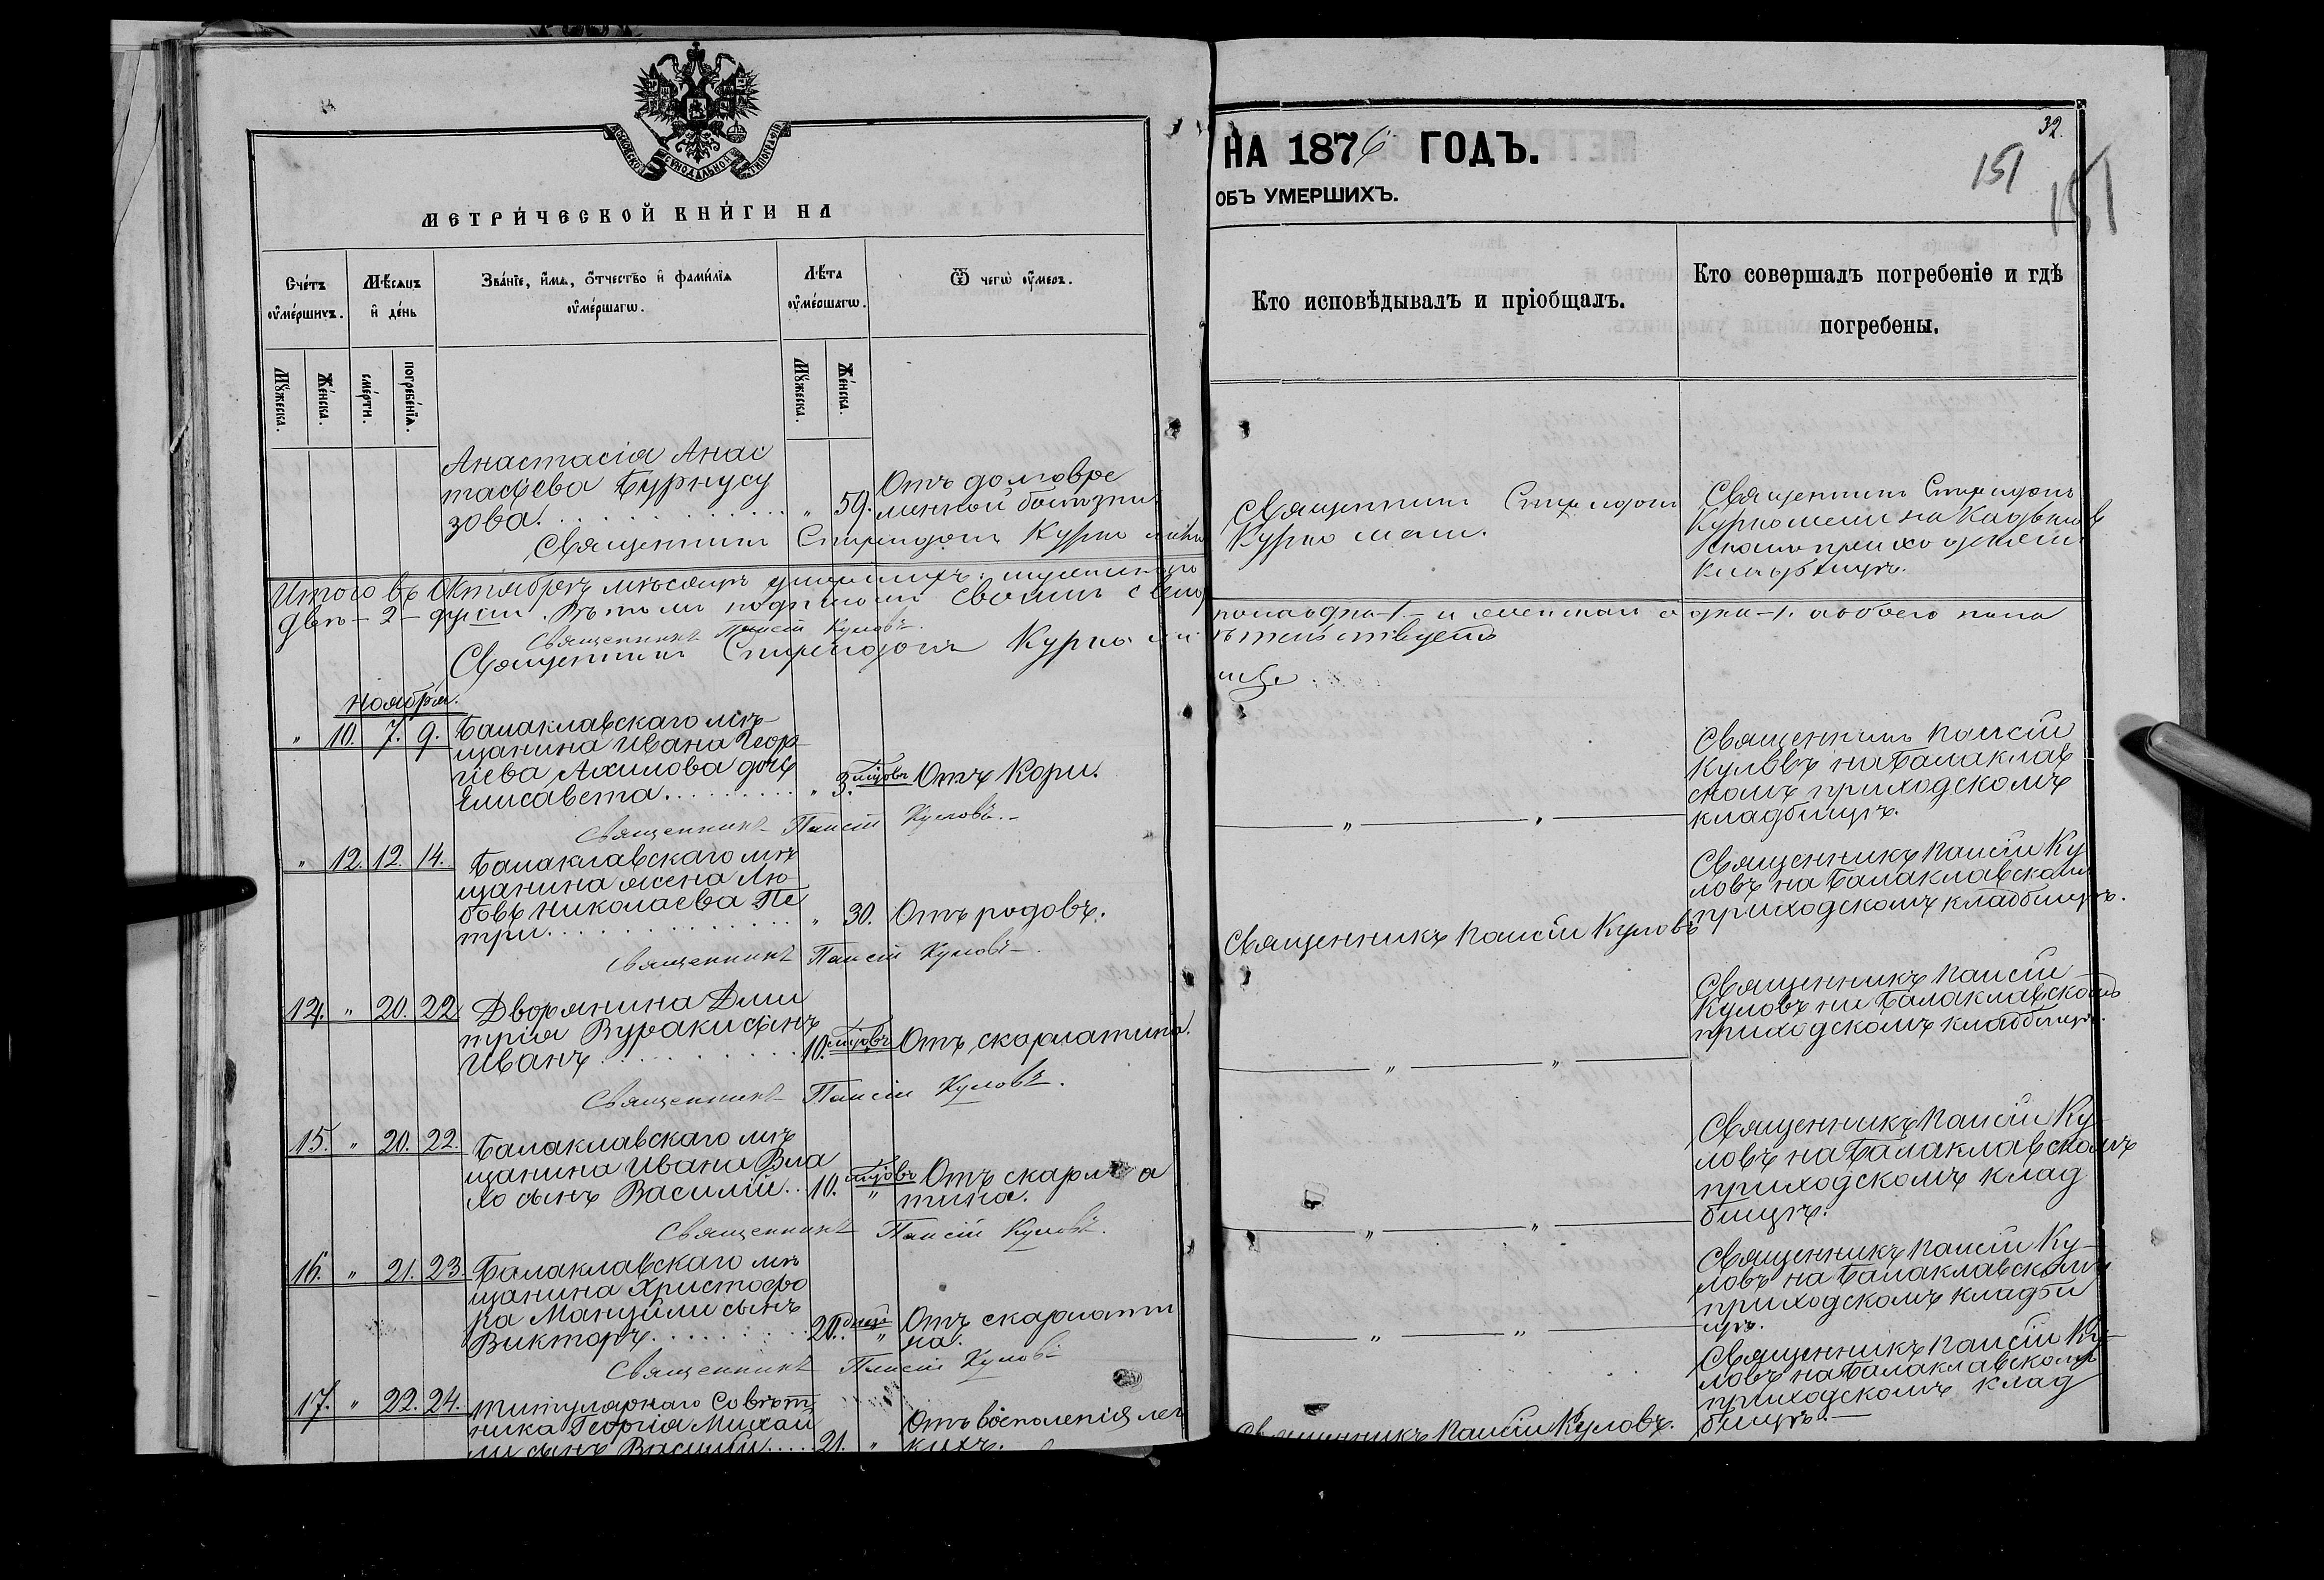 МОСКОВСКОЙ СѴНОДАЛЬНОЙ ТИПОГРАФІИ
МЕТРИ́ЧЕСКОЙ КНИ́ГИ НА
НА 1876 ГОДЪ.
ОБЪ УМЕРШИХЪ.
32.
151
151
Сче́тъ
ᲂу҆ме́ршихъ.
Мѣ́сѧцъ
и҆ де́нь
Зва́нїе, и҆́мѧ, ѻ҆́тчество и҆ фами́лїѧ
ᲂу҆ме́ршагѡ.
Лѣ́та
ᲂу҆ме́ршагѡ.
Ѿ чегѡ̀ ᲂу҆́меръ.
Кто исповѣдывалъ и пріобщалъ.
Кто совершалъ погребеніе и гдѣ
погребены.
Мꙋ́жеска.
Же́нска.
сме́рти.
погребе́нїѧ.
Мꙋ́жеска.
Же́нска.
Анастасія Анас
тасіева Бурнусу
зова. " 59.
Отъ долговре
менной болѣзни
Священникъ Спиридонъ
Священникъ Спиридонъ
Курко
Священникъ Спиридонъ Курко
кладбищѣ.
Итого въ Октябрѣ мѣсяцѣ умершихъ: мужескаго
пола одна -1- и женскаго одна -1. обоего пола
двѣ - 2 - души. Въ томъ подписомъ своимъ
свидѣтельствуетъ
Священникъ Паисій Куловъ.
Священникъ Спиридонъ Курко
Ноября.
" 10. 7. 9. Балаклавскаго мѣ-
щанина Ивана Геор-
гіева Ахилова дочь
Елисавета. " 3. мѣцовъ Отъ Кори.
Священникъ Паисій
Куловъ на Балаклав
скомъ приходскомъ
кладбищѣ.
Священникъ Паисій Куловъ.-
" 12. 12. 14. Балаклавскаго мѣ
щанина жена Лю-
бовь Николаева Пе
три. " 30. Отъ родовъ.
Священникъ Паисій Куловъ
Священникъ Паисій Ку
ловъ на Балаклавскомъ
приходскомъ кладбищѣ.
Священникъ Паисій Куловъ-
14. " 20. 22 Дворянина Дми
трія Вураки сынъ
Иванъ 10. мѣцовъ Отъ скарлатина.
Священникъ Паисій
Куловъ на Балаклавскомъ
приходскомъ кладбищѣ.
Священникъ Паисій Куловъ.
15. " 20. 22. Балаклавскаго мѣ
щанина Ивана Вла
ло сынъ Василій.. 10. мѣцовъ " Отъ скарла
тина.
Священникъ Паисій Ку-
ловъ на Балаклавскомъ
приходскомъ клад
бищѣ.
Священникъ Паисій Куловъ.
16. " 21. 23. Балаклавскаго мѣ
щанина Христофо
ра Мануили сынъ
Викторъ. 20. дней " Отъ скарлати
на.
Священникъ Паисій Ку-
ловъ на Балаклавскомъ
приходскомъ кладби
щѣ.
Священникъ Паисій Куловъ
17. " 22. 24. Титулярнаго Совѣт
ника Георгія Михай
ли сынъ Василій..... 21. " Отъ воспаленія лег
кихъ.
Священникъ Паисій Куловъ.
Священникъ Паисій Ку-
ловъ на Балаклавскомъ
приходскомъ клад
бищѣ.-